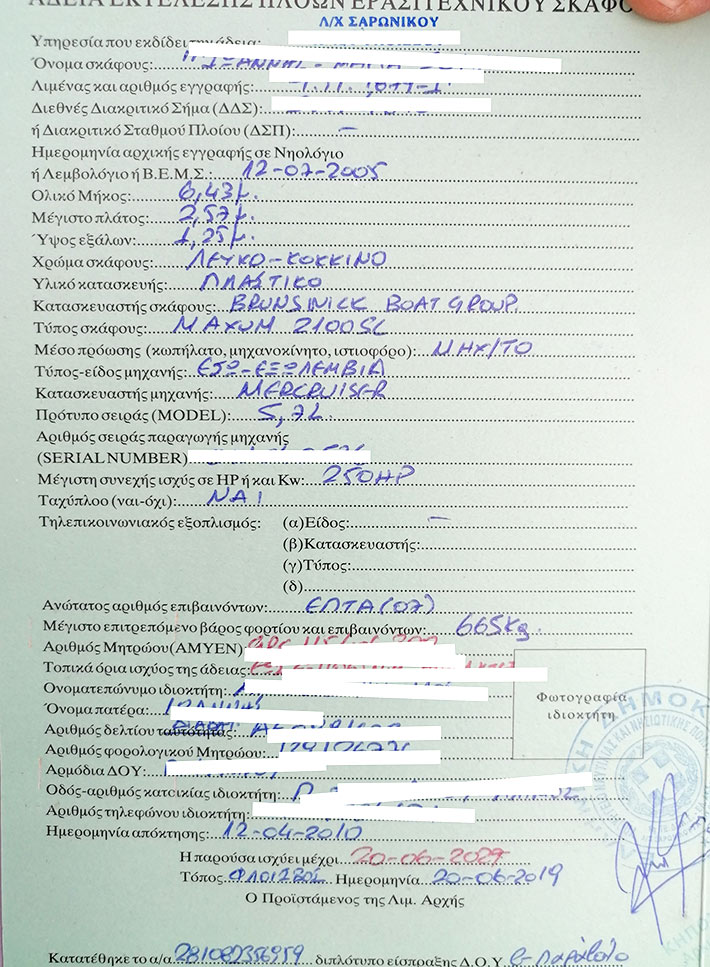 ΑΔΕΙΑ ΕΚΤΕΛΕΣΗΣ ΠΛΟΩΝ ΕΡΑΣΙΤΕΧΝΙΚΟΥ ΣΚΑΦΟ
Λ/Χ ΣΑΡΩΝΙΚΟΥ
Υπηρεσία που εκδίδει την άδεια:
Όνομα σκάφους:
Λιμένας και αριθμός εγγραφής:
Διεθνές Διακριτικό Σήμα (ΔΔΣ):
ή Διακριτικό Σταθμού Πλοίου (ΔΣΠ): —
Ημερομηνία αρχικής εγγραφής σε Νηολόγιο
ή Λεμβολόγιο ή Β.Ε.Μ.Σ.: 12-07-2005
Ολικό Μήκος: 6,43μ.
Μέγιστο πλάτος: 2,57μ.
Ύψος εξάλων: 1,25μ.
Χρώμα σκάφους: ΛΕΥΚΟ-ΚΟΚΚΙΝΟ
Υλικό κατασκευής: ΠΛΑΣΤΙΚΟ
Κατασκευαστής σκάφους: BRUNSWICK BOAT GROUP
Τύπος σκάφους: MAXUM 2100SC
Μέσο πρόωσης (κωπήλατο, μηχανοκίνητο, ιστιοφόρο): ΜΗΧ/ΤΟ
Τύπος-είδος μηχανής: ΕΣΩ-ΕΞΩΛΕΜΒΙΑ
Κατασκευαστής μηχανής: MERCRUISER
Πρότυπο σειράς (MODEL): 5,7L
Αριθμός σειράς παραγωγής μηχανής
(SERIAL NUMBER)
Μέγιστη συνεχής ισχύς σε HP ή και Kw: 250HP
Ταχύπλοο (ναι-όχι): ΝΑΙ
Τηλεπικοινωνιακός εξοπλισμός: (α) Είδος: —
(β) Κατασκευαστής:
(γ) Τύπος:
(δ)
Ανώτατος αριθμός επιβαινόντων: ΕΠΤΑ (07)
Μέγιστο επιτρεπόμενο βάρος φορτίου και επιβαινόντων: 665Kg.
Αριθμός Μητρώου (ΑΜΥΕΝ)
Τοπικά όρια ισχύος της άδειας:
Ονοματεπώνυμο ιδιοκτήτη:
Φωτογραφία
ιδιοκτήτη
Όνομα πατέρα: ΙΩΑΝΝΗΣ
Αριθμός δελτίου ταυτότητας:
Αριθμός φορολογικού Μητρώου:
Αρμόδια ΔΟΥ:
Οδός-αριθμός κατοικίας ιδιοκτήτη:
Αριθμός τηλεφώνου ιδιοκτήτη:
Ημερομηνία απόκτησης: 12-04-2010
Η παρούσα ισχύει μέχρι 20-06-2029
Τόπος ΦΛΟΙΣΒΟΣ Ημερομηνία 20-06-2019
Ο Προϊστάμενος της Λιμ. Αρχής
Κατατέθηκε το α/α 281082356959 διπλότυπο είσπραξης Δ.Ο.Υ. e-παράβολο